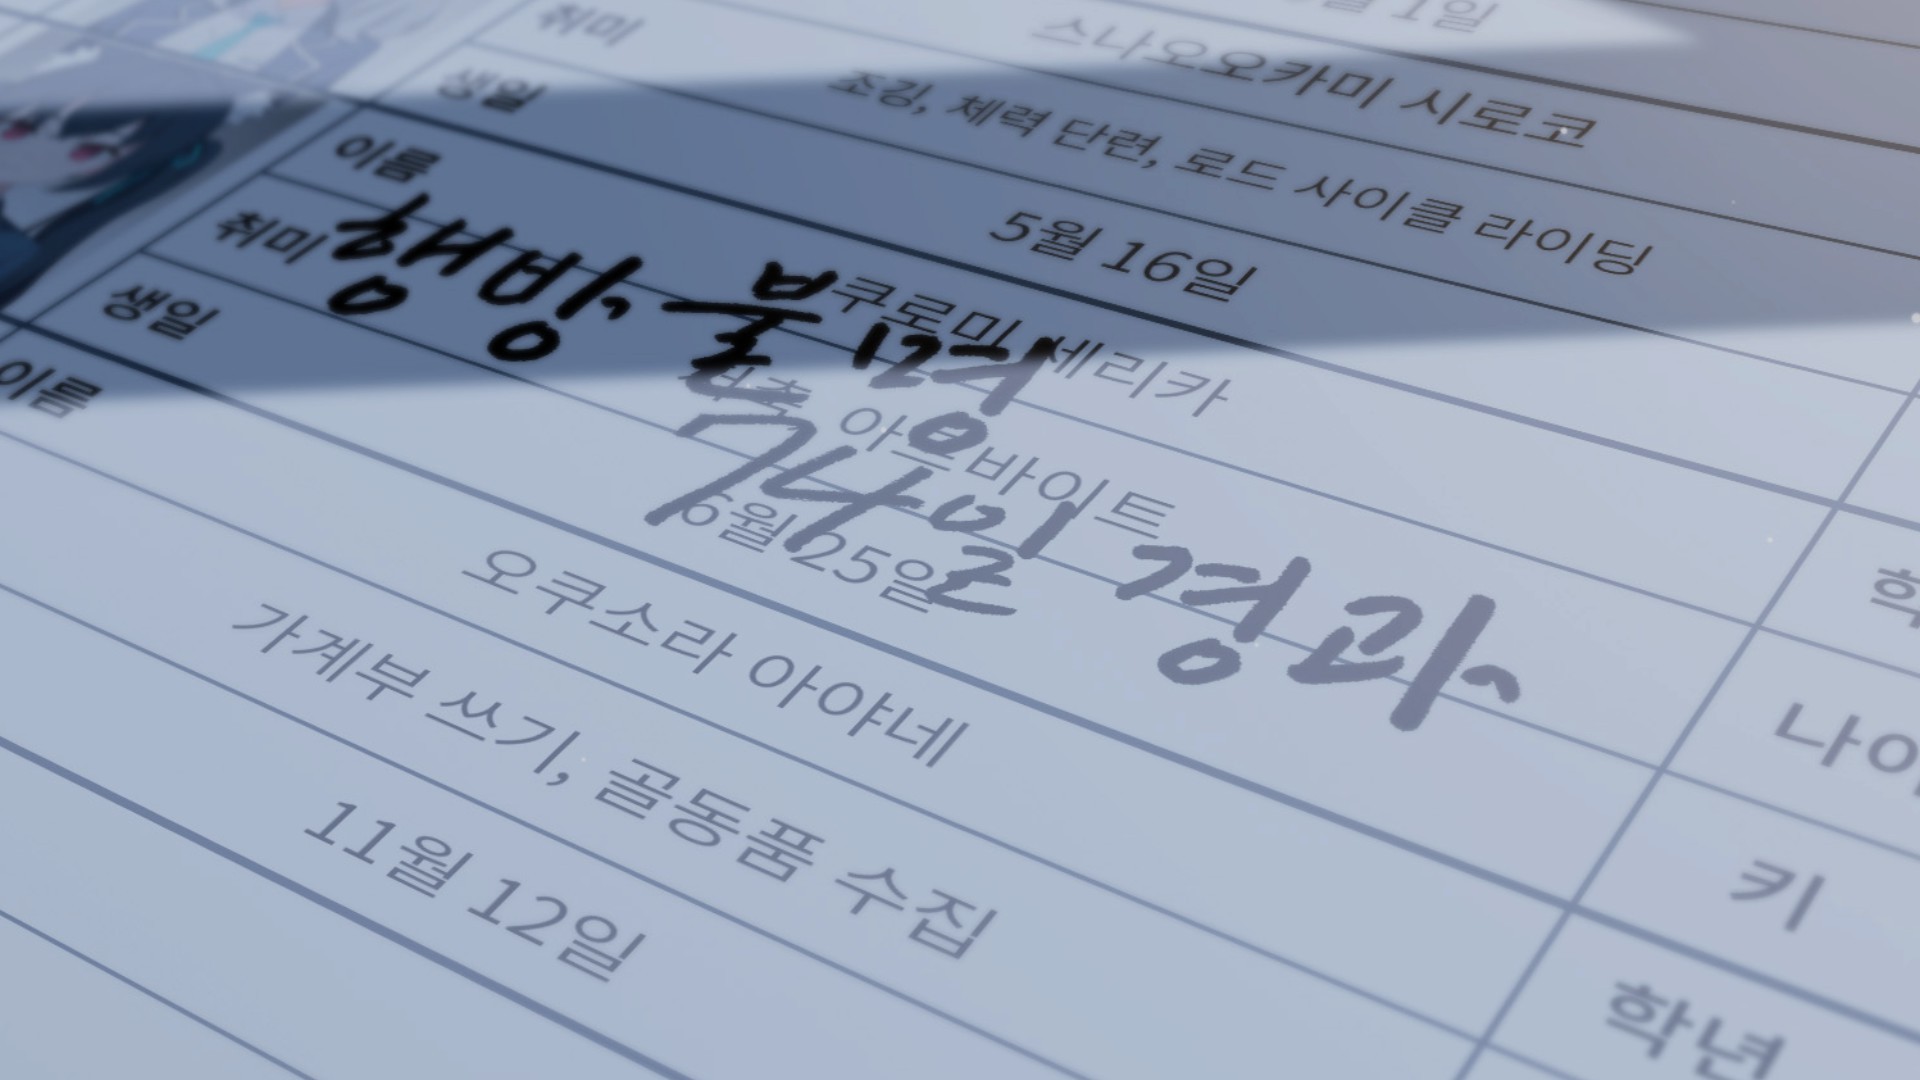 1일
취미 스나오오카미 시로코
생일 조깅, 체력 단련, 로드 사이클 라이딩
이름 5월 16일
취미 쿠로미 세리카
생일 저축, 아르바이트
이름 6월 25일
행방 불명
72일 경과
오쿠소라 아야네
가계부 쓰기, 골동품 수집
11월 12일
나이
키
학년